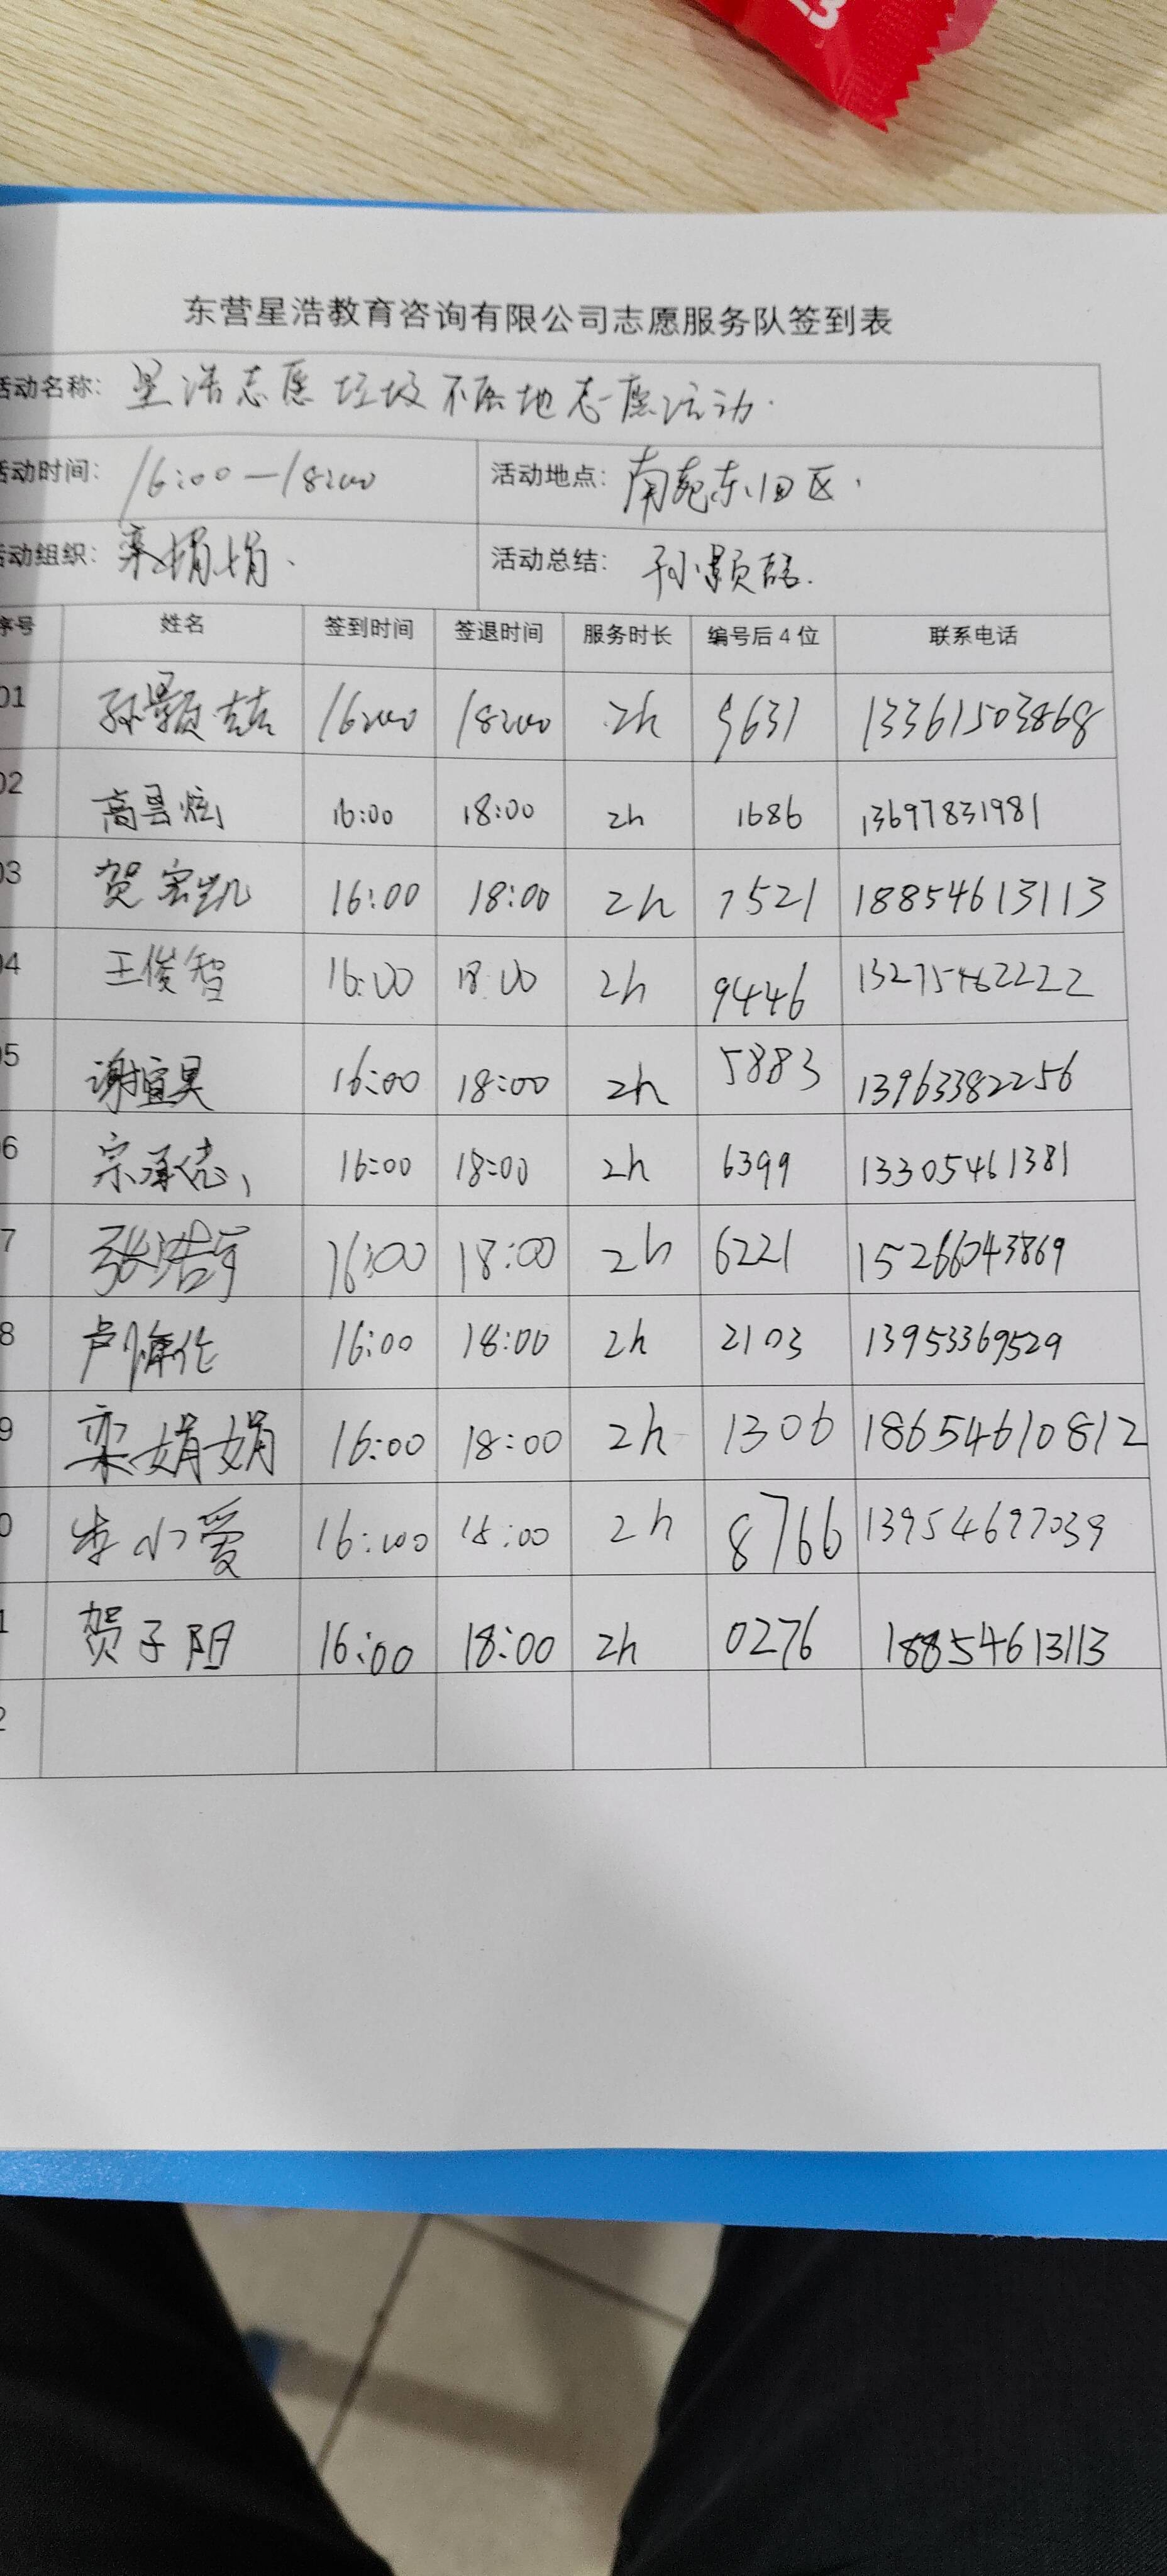 东营星浩教育咨询有限公司志愿服务队签到表
活动名称: 星浩志愿垃圾不落地志愿活动.
活动时间: 16:00—18:00 活动地点: 南苑东旧区.
活动组织: 栾娟娟. 活动总结: 孙颢喆.
序号 姓名 签到时间 签退时间 服务时长 编号后4位 联系电话
01 孙颢喆 16:00 18:00 2h 9631 13361503868
02 高昙炫 16:00 18:00 2h 1686 13697831981
03 贺宏凯 16:00 18:00 2h 7521 18854613113
04 王俊智 16:00 18:00 2h 9446 13275462222
05 谢宜昊 16:00 18:00 2h 5883 13963382256
6 宗承志 16:00 18:00 2h 6399 13305461381
7 张浩宇 16:00 18:00 2h 6221 15266043869
8 卢 16:00 18:00 2h 2103 13953369529
9 栾娟娟 16:00 18:00 2h 1306 18654610812
0 李小爱 16:00 18:00 2h 8766 13954697039
1 贺子阳 16:00 18:00 2h 0276 18854613113
2